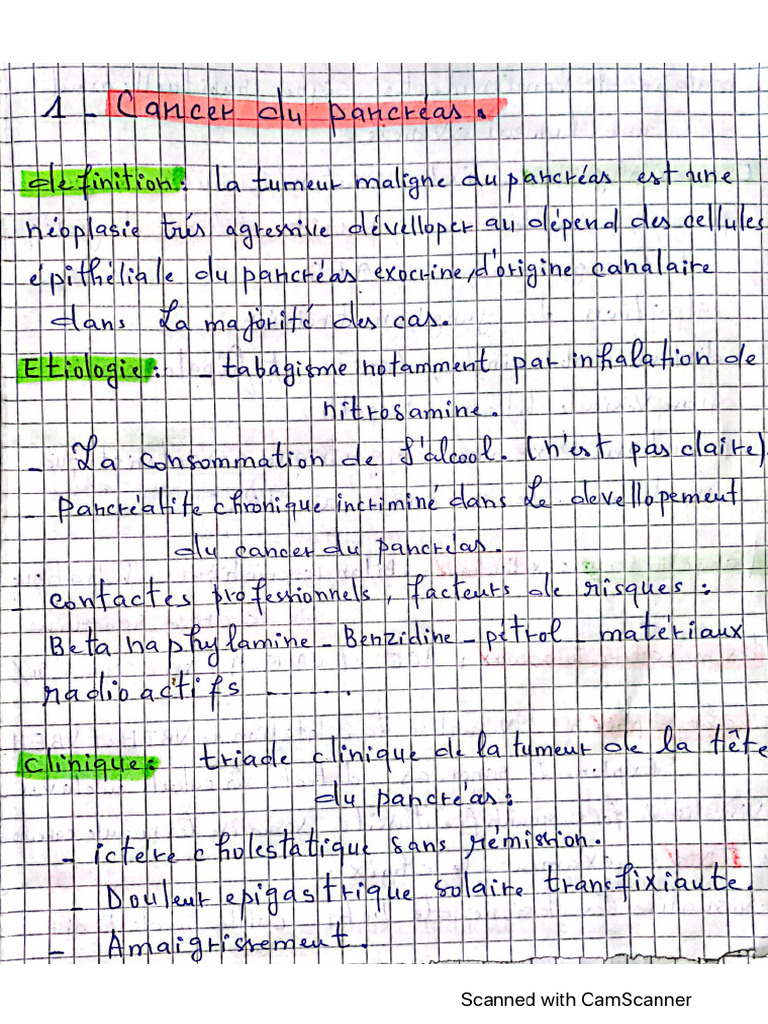 1 - Cancer du pancréas.
definition: La tumeur maligne du pancréas est une
néoplasie trés agressive dévelloper au dépend des cellules
épithéliale du pancréas exocrine, d'origine canalaire
dans la majorité des cas.
Etiologie: - tabagisme notamment par inhalation de
nitrosamine.
- La consommation de l'alcool. (n'est pas claire)
- Pancréatite chronique incriminé dans le devellopement
du cancer du pancréas.
- contactes professionnels, facteurs de risques:
Beta naphylamine - Benzidine - pétrol - matériaux
radio actifs .......
clinique: triade clinique de la tumeur de la tête
du pancréas:
- ictere cholestatique sans rémission.
- Douleur epigastrique solaire transfixiaute.
- Amaigrissement.
Scanned with CamScanner